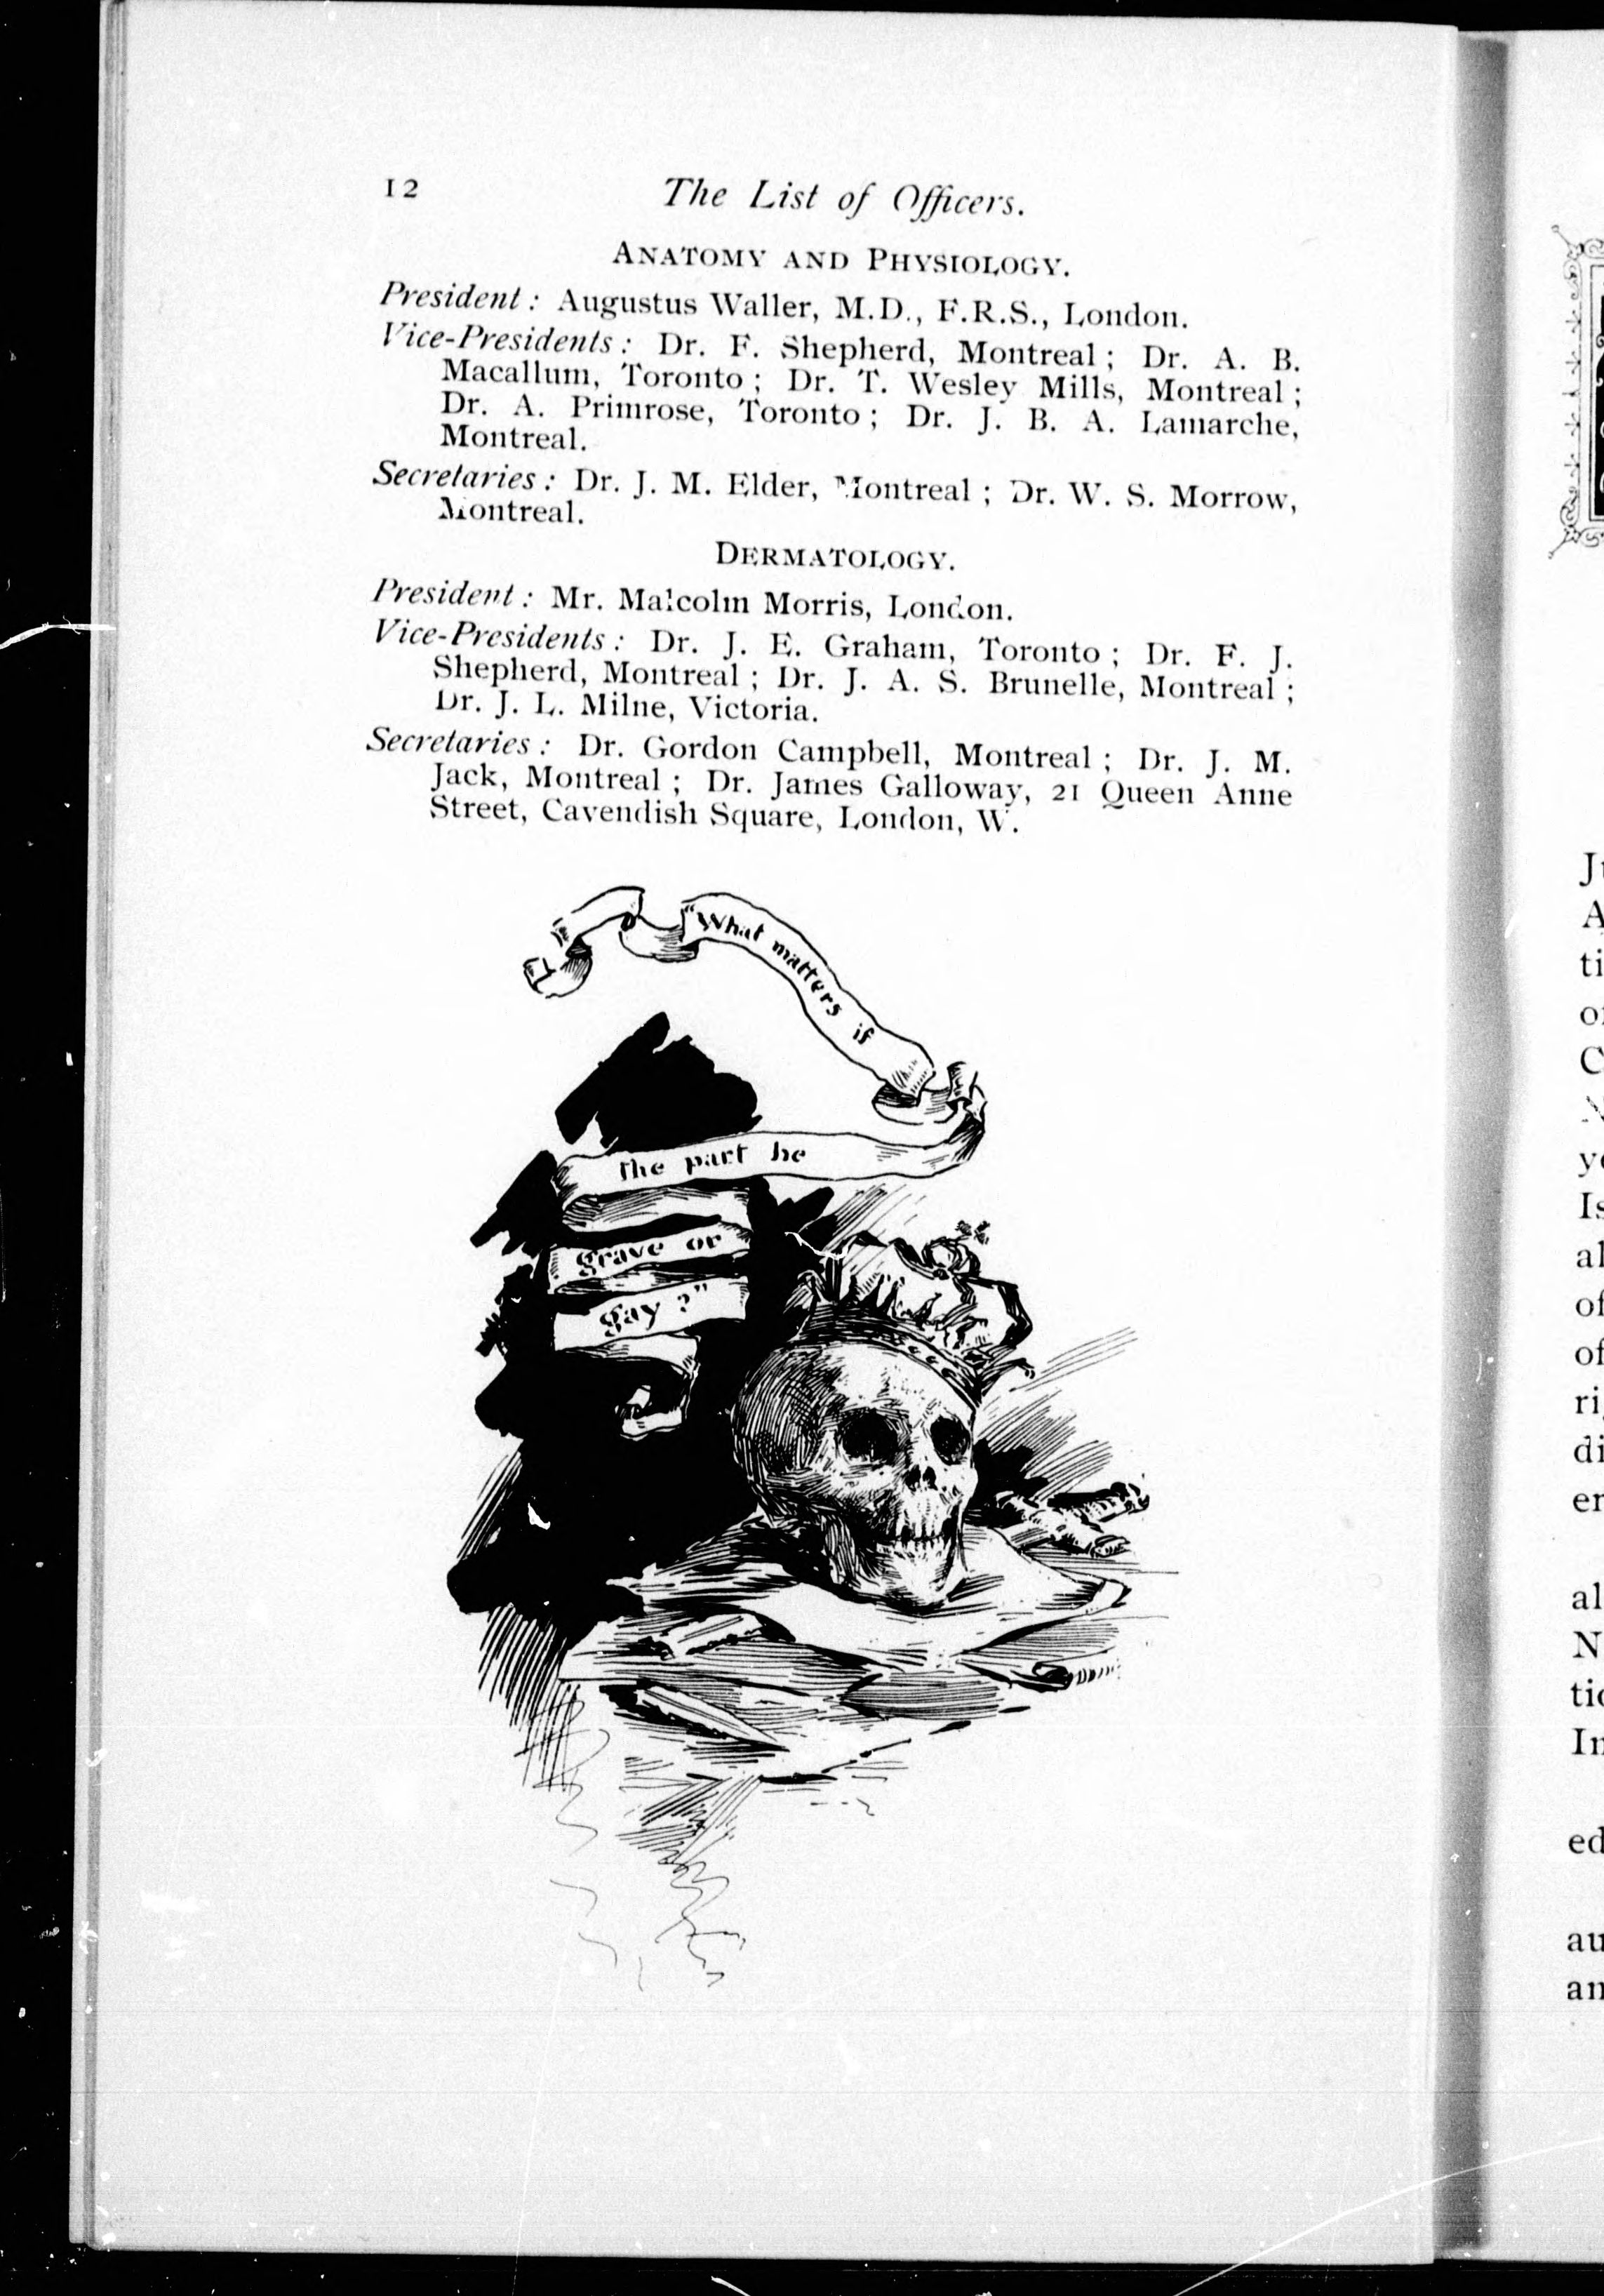 12
The List of Officers.
ANATOMY AND PHYSIOLOGY.
President : Augustus Waller, M.D., F.R.S., London.
Vice-Presidents : Dr. F. Shepherd, Montreal ; Dr. A. B.
Macallum, Toronto ; Dr. T. Wesley Mills, Montreal ;
Dr. A. Primrose, Toronto ; Dr. J. B. A. Lamarche,
Montreal.
Secretaries : Dr. J. M. Elder, Montreal ; Dr. W. S. Morrow,
Montreal.
DERMATOLOGY.
President : Mr. Malcolm Morris, London.
Vice-Presidents : Dr. J. E. Graham, Toronto ; Dr. F. J.
Shepherd, Montreal ; Dr. J. A. S. Brunelle, Montreal ;
Dr. J. L. Milne, Victoria.
Secretaries : Dr. Gordon Campbell, Montreal ; Dr. J. M.
Jack, Montreal ; Dr. James Galloway, 21 Queen Anne
Street, Cavendish Square, London, W.
"What matters if
the part be
grave or
gay ?"